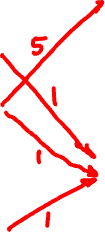 5
1
1
1